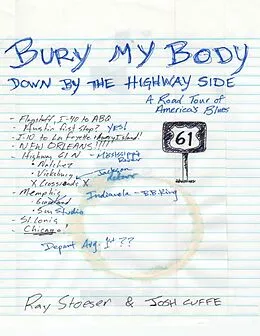 BURY MY BODY
DOWN BY THE HIGHWAY SIDE
A Road Tour of
America's Blues
- Flagstaff, I-40 to ABQ
- Austin first stop? YES!
- I-10 to Lafayette
- NEW ORLEANS!!!!
- Highway 61 N - Mississippi
• Natchez
• Vicksburg
Jackson
X Crossroads X
- Memphis
Indianola - B.B. King
• Graceland
• Sun Studio
- St. Louis
- Chicago!
Depart Aug. 1st ??
61
Ray Stoeser & JOSH CUFFE